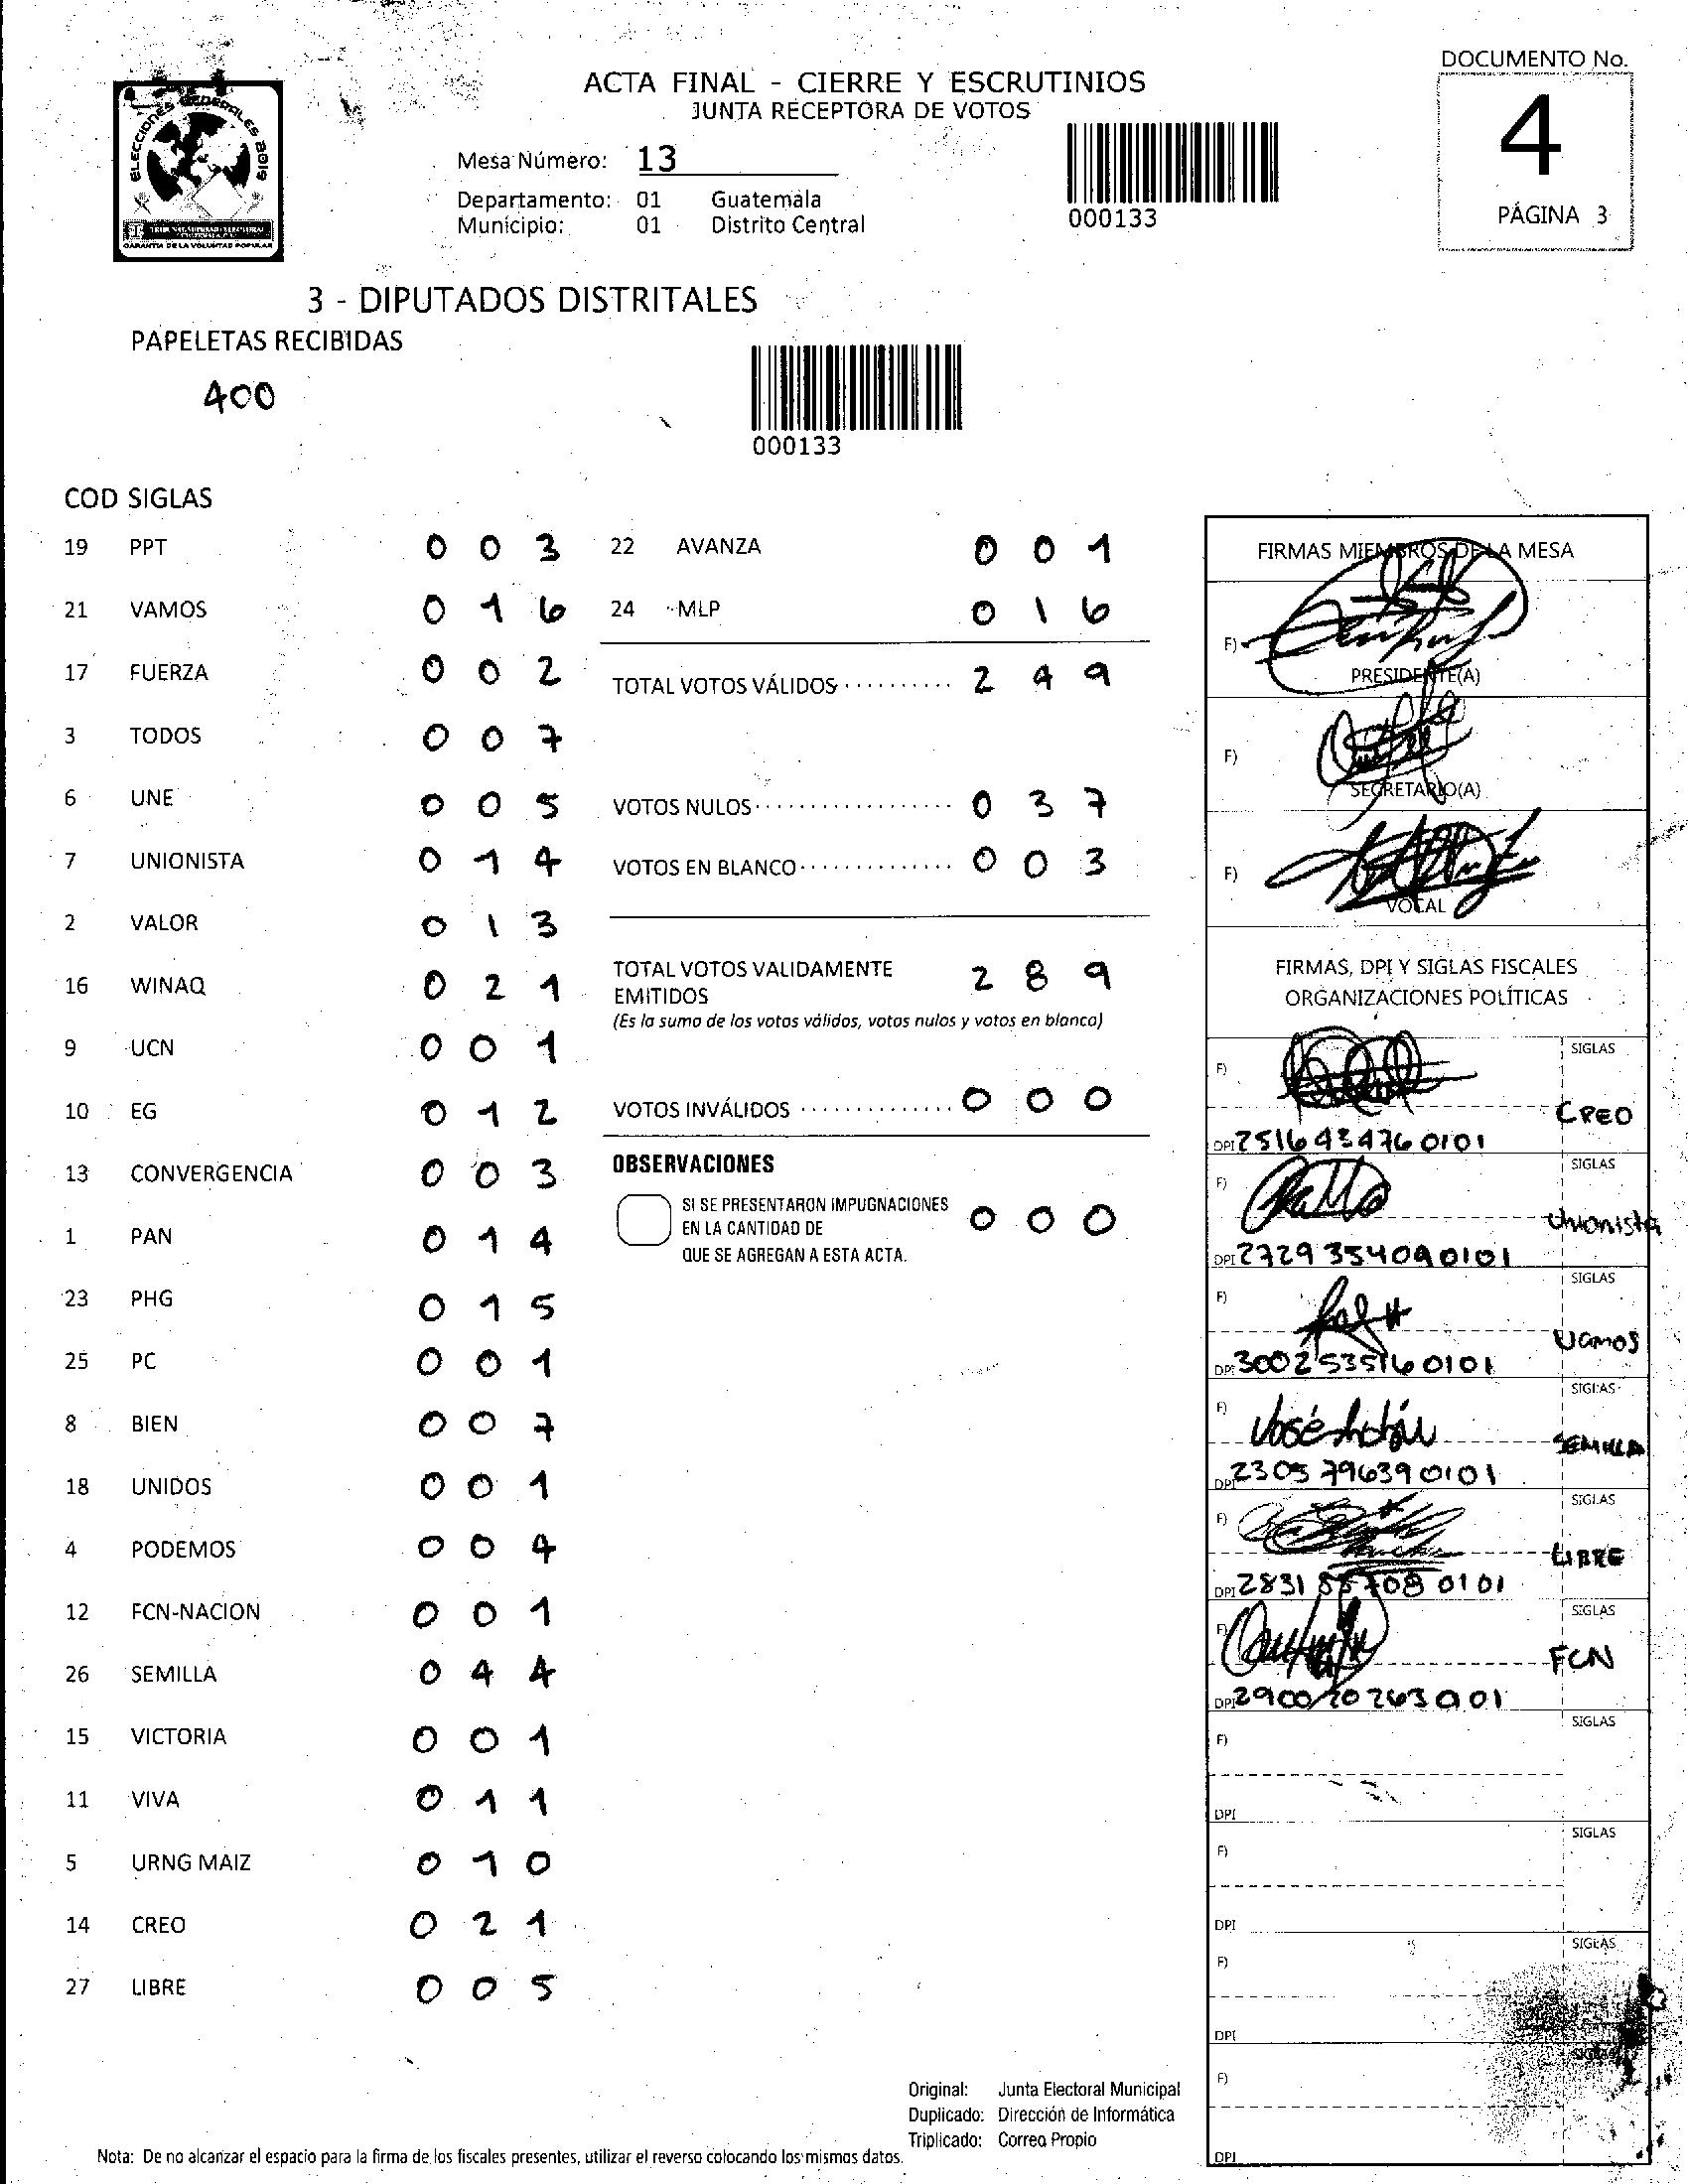 DOCUMENTO No.
4
PÁGINA 3
ELECCIONES GENERALES 2019
GARANTIA DE LA VOLUNTAD POPULAR
ACTA FINAL - CIERRE Y ESCRUTINIOS
JUNTA RECEPTORA DE VOTOS
Mesa Número: 13
Departamento: 01 Guatemala
Municipio: 01 Distrito Central
000133
3 - DIPUTADOS DISTRITALES
PAPELETAS RECIBIDAS
400
000133
COD SIGLAS
19 PPT 0 0 3
21 VAMOS 0 1 6
17 FUERZA 0 0 2
3 TODOS 0 0 7
6 UNE 0 0 5
7 UNIONISTA 0 1 4
2 VALOR 0 1 3
16 WINAQ 0 2 1
9 UCN 0 0 1
10 EG 0 1 2
13 CONVERGENCIA 0 0 3
1 PAN 0 1 4
23 PHG 0 1 5
25 PC 0 0 1
8 BIEN 0 0 7
18 UNIDOS 0 0 1
4 PODEMOS 0 0 4
12 FCN-NACION 0 0 1
26 SEMILLA 0 4 4
15 VICTORIA 0 0 1
11 VIVA 0 1 1
5 URNG MAIZ 0 1 0
14 CREO 0 2 1
27 LIBRE 0 0 5
22 AVANZA 0 0 1
24 MLP 0 1 6
TOTAL VOTOS VÁLIDOS 2 4 9
VOTOS NULOS 0 3 7
VOTOS EN BLANCO 0 0 3
TOTAL VOTOS VALIDAMENTE
EMITIDOS 2 8 9
(Es la suma de los votos válidos, votos nulos y votos en blanco)
VOTOS INVÁLIDOS 0 0 0
OBSERVACIONES
SI SE PRESENTARON IMPUGNACIONES
EN LA CANTIDAD DE 0 0 0
QUE SE AGREGAN A ESTA ACTA.
FIRMAS MIEMBROS DE LA MESA
F)
PRESIDENTE(A)
F)
SECRETARIO(A)
F)
VOCAL
FIRMAS, DPI Y SIGLAS FISCALES
ORGANIZACIONES POLÍTICAS
F) SIGLAS
CREO
DPI 2516 43476 0101
F) SIGLAS
Unionista
DPI 2729 35409 0101
F) SIGLAS
Vamos
DPI 3002 53516 0101
F) SIGLAS
José
SEMILLA
DPI 2305 79639 0101
F) SIGLAS
LIBRE
DPI 2831 0101
F) SIGLAS
FCN
DPI
F) SIGLAS
DPI
F) SIGLAS
DPI
F) SIGLAS
DPI
F) SIGLAS
DPI
Original: Junta Electoral Municipal
Duplicado: Dirección de Informática
Triplicado: Correo Propio
Nota: De no alcanzar el espacio para la firma de los fiscales presentes, utilizar el reverso colocando los mismos datos.